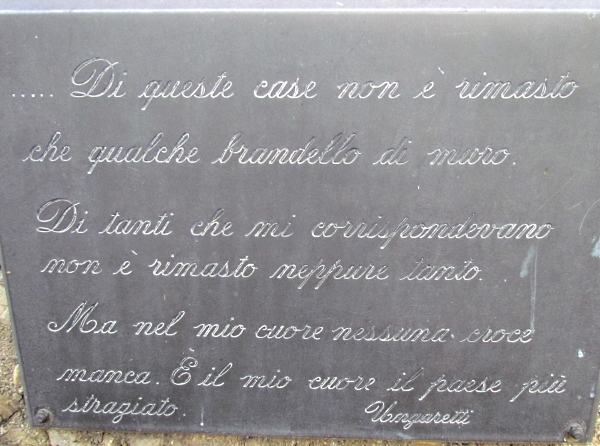 ..... Di queste case non è rimasto
che qualche brandello di muro.
Di tanti che mi corrispondevano
non è rimasto neppure tanto...
Ma nel mio cuore nessuna croce
manca. È il mio cuore il paese più
straziato. Ungaretti